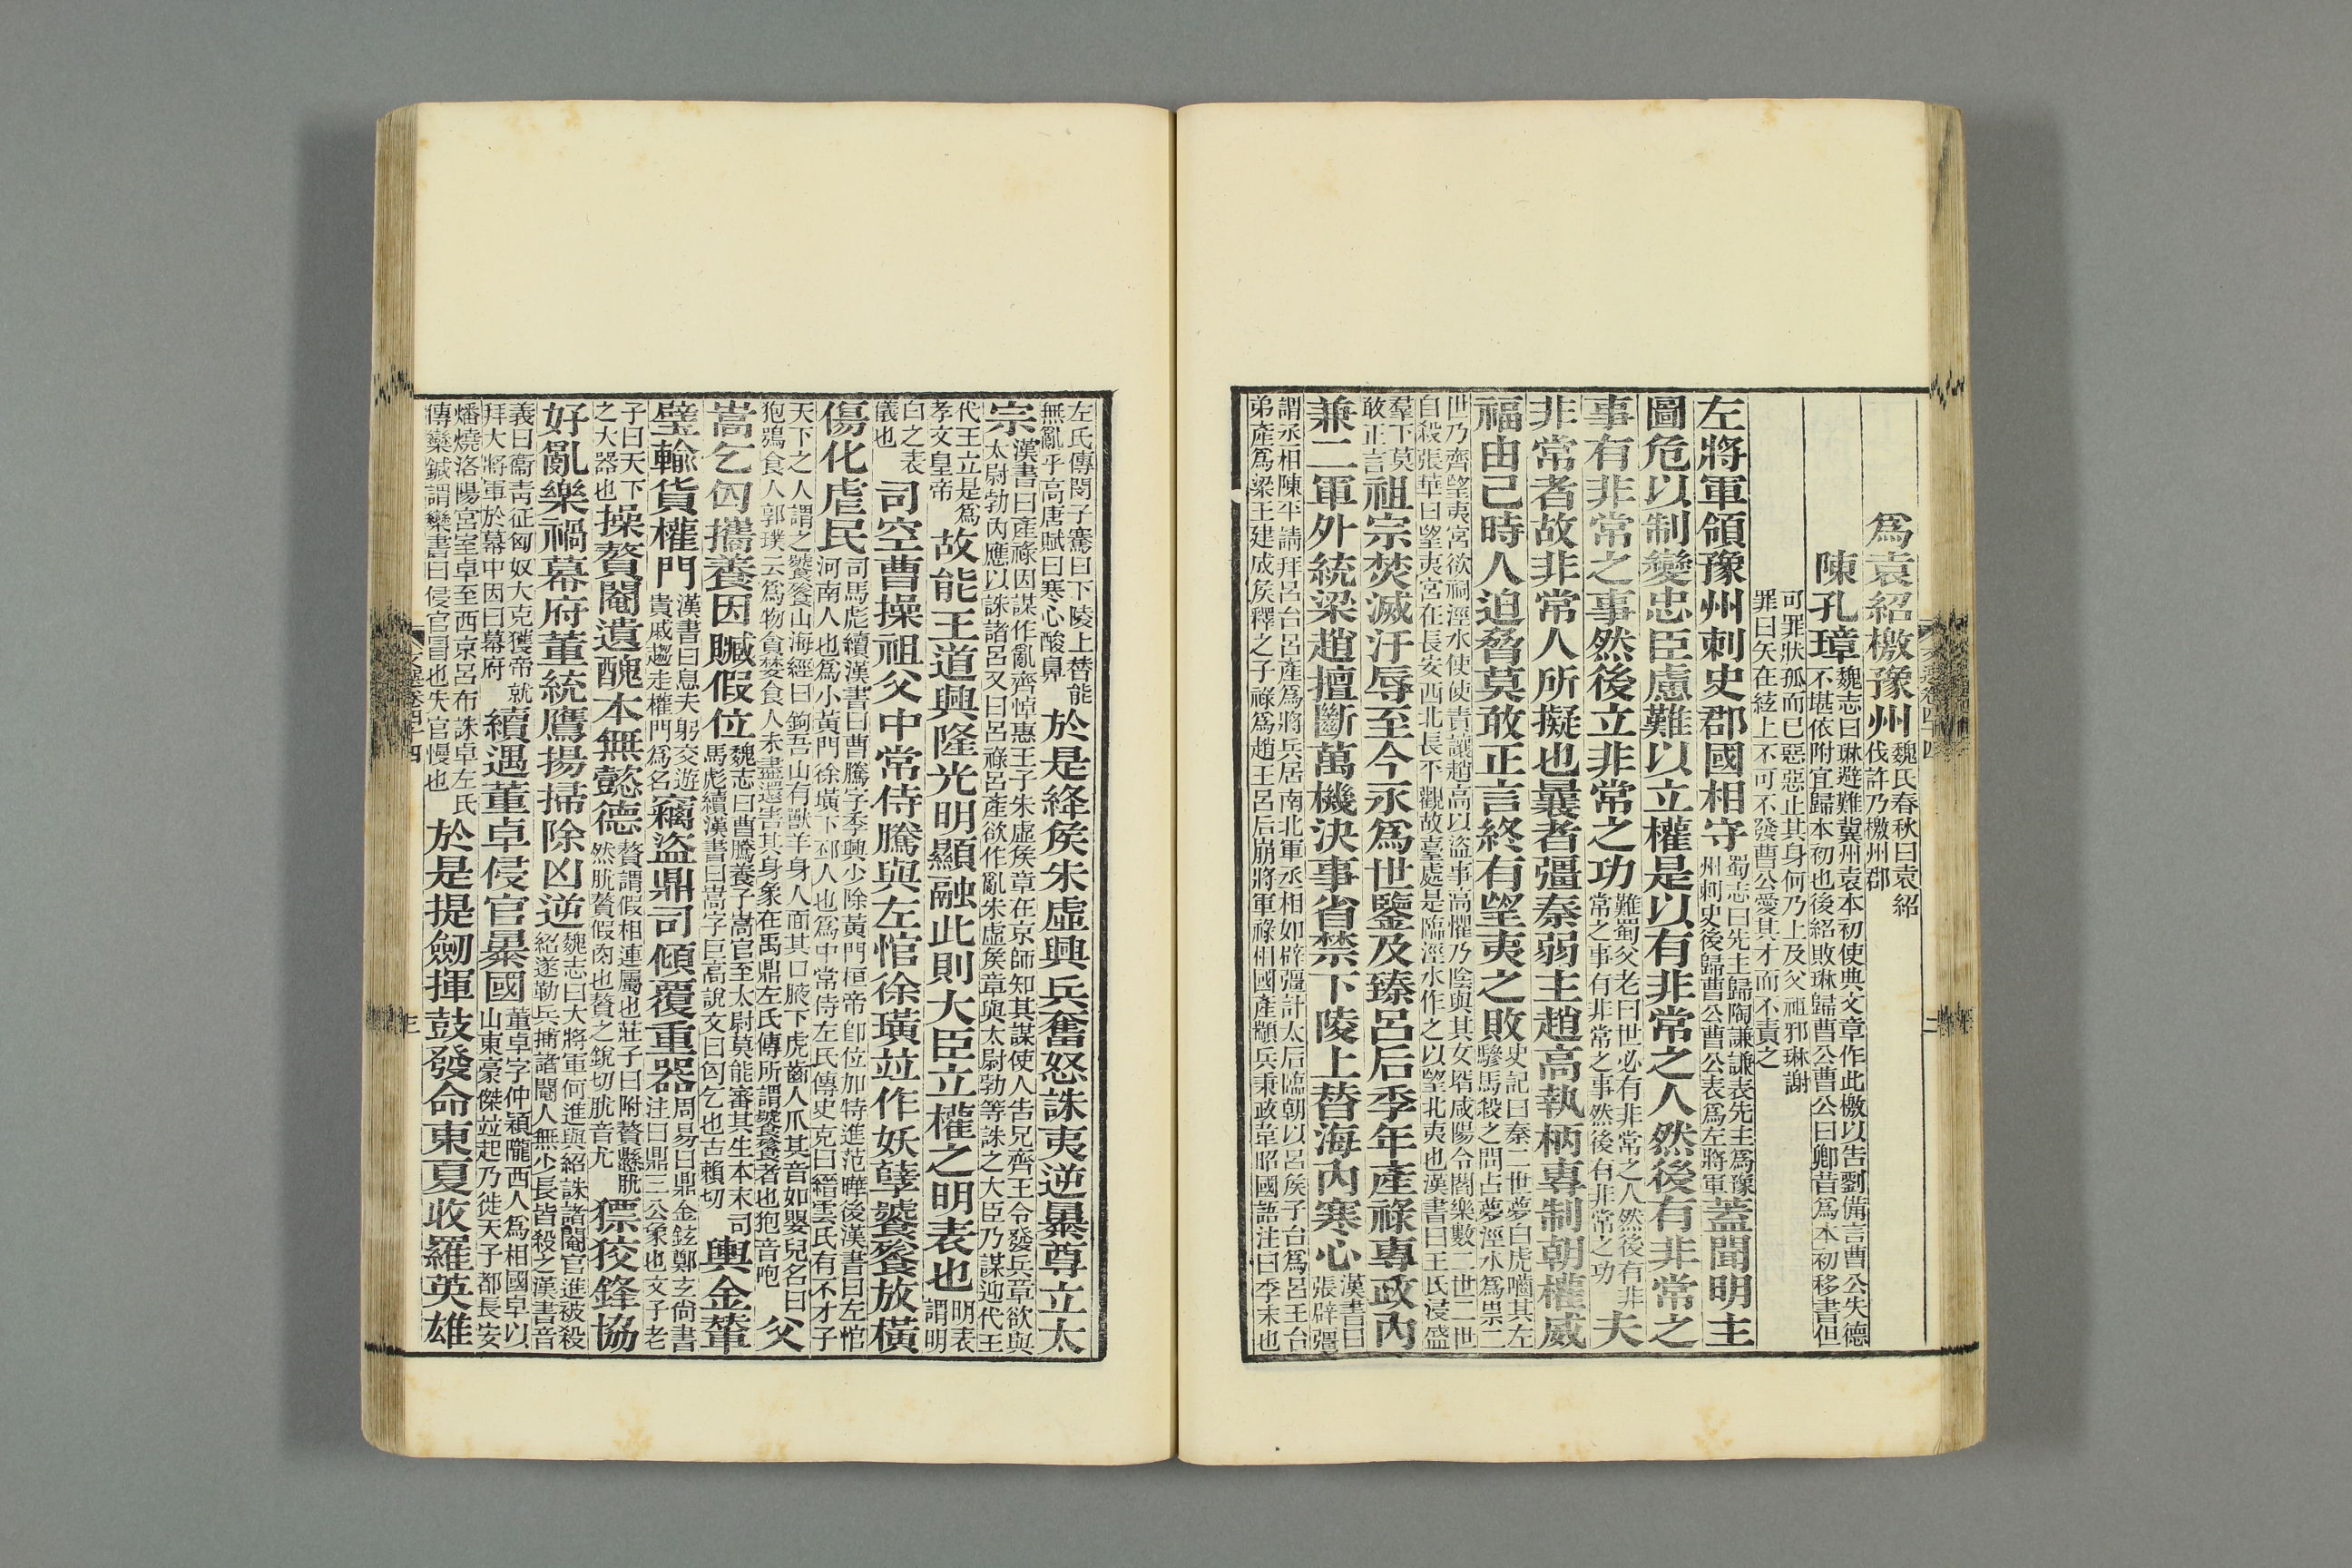 爲袁紹檄豫州魏氏春秋曰袁紹伐許乃檄州郡
陳孔璋魏志曰琳避難冀州袁本初使典文章作此檄以告劉備言曹公失德不堪依附宜歸本初也後紹敗琳歸曹公曹公曰卿昔爲本初移書但
可罪狀孤而已惡惡止其身何乃上及父祖邪琳謝罪曰矢在絃上不可不發曹公愛其才而不責之
左將軍領豫州刺史郡國相守蜀志曰先主歸陶謙謙表先主爲豫州刺史後歸曹公曹公表爲左將軍蓋聞明主
圖危以制變忠臣慮難以立權是以有非常之人然後有非常之
事有非常之事然後立非常之功難蜀父老曰世必有非常之人然後有非常之事有非常之事然後有非常之功夫
非常者故非常人所擬也曩者彊秦弱主趙高執柄專制朝權威
福由己時人迫脅莫敢正言終有望夷之敗史記曰秦二世夢白虎嚙其左驂馬殺之問占夢涇水爲祟二
世乃齊望夷宮欲祠涇水使使責讓趙高以盜事高懼乃陰與其女壻咸陽令閻樂數二世二世自殺張華曰望夷宮在長安西北長平觀故臺處是臨涇水作之以望北夷也漢書曰王氏浸盛
羣下莫敢正言祖宗焚滅汙辱至今永爲世鑒及臻呂后季年產祿專政內
兼二軍外統梁趙擅斷萬機決事省禁下陵上替海內寒心漢書曰張辟彊
謂丞相陳平請拜呂台呂產爲將兵居南北軍丞相如辟彊計太后臨朝以呂矦子台爲呂王台弟產爲梁王建成矦釋之子祿爲趙王呂后崩將軍祿相國產顓兵秉政韋昭國語注曰季末也
文選卷四十四
二
左氏傳閔子騫曰下陵上替能無亂乎高唐賦曰寒心酸鼻於是絳矦朱虛興兵奮怒誅夷逆暴尊立太
宗漢書曰產祿因謀作亂齊悼惠王子朱虛矦章在京師知其謀使人告兄齊王令發兵章欲與太尉勃內應以誅諸呂又曰呂祿呂產欲作亂朱虛矦章與太尉勃等誅之大臣乃謀迎代王
代王立是爲孝文皇帝故能王道興隆光明顯融此則大臣立權之明表也明表謂明
白之表儀也司空曹操祖父中常侍騰與左悺徐璜竝作妖孽饕餮放橫
傷化虐民司馬彪續漢書曰曹騰字季興少除黃門桓帝卽位加特進范曄後漢書曰左悺河南人也爲小黃門徐璜下邳人也爲中常侍左氏傳史克曰縉雲氏有不才子
天下之人謂之饕餮山海經曰鉤吾山有獸羊身人面其口腋下虎齒人爪其音如嬰兒名曰狍鴞食人郭璞云爲物貪婪食人未盡還害其身象在禹鼎左氏傳所謂饕餮者也狍音咆父
嵩乞匃攜養因贓假位魏志曰曹騰養子嵩官至太尉莫能審其生本末司馬彪續漢書曰嵩字巨高說文曰匃乞也古賴切輿金輦
璧輸貨權門漢書曰息夫躬交遊貴戚趨走權門爲名竊盜鼎司傾覆重器周易曰鼎金鉉鄭玄尙書注曰鼎三公象也文子老
子曰天下之大器也操贅閹遺醜本無懿德贅謂假相連屬也莊子曰附贅懸肬然肬贅假肉也贅之銳切肬音尤獟狡鋒協
好亂樂禍幕府董統鷹揚掃除凶逆魏志曰大將軍何進與紹誅諸閹官進被殺紹遂勒兵捕諸閹人無少長皆殺之漢書音
義曰衞青征匈奴大克獲帝就拜大將軍於幕中因曰幕府續遇董卓侵官暴國董卓字仲潁隴西人爲相國卓以山東豪傑竝起乃徙天子都長安
燔燒洛陽宮室卓至西京呂布誅卓左氏傳欒鍼謂欒書曰侵官冒也失官慢也於是提劒揮鼓發命東夏收羅英雄
文選卷四十四
三